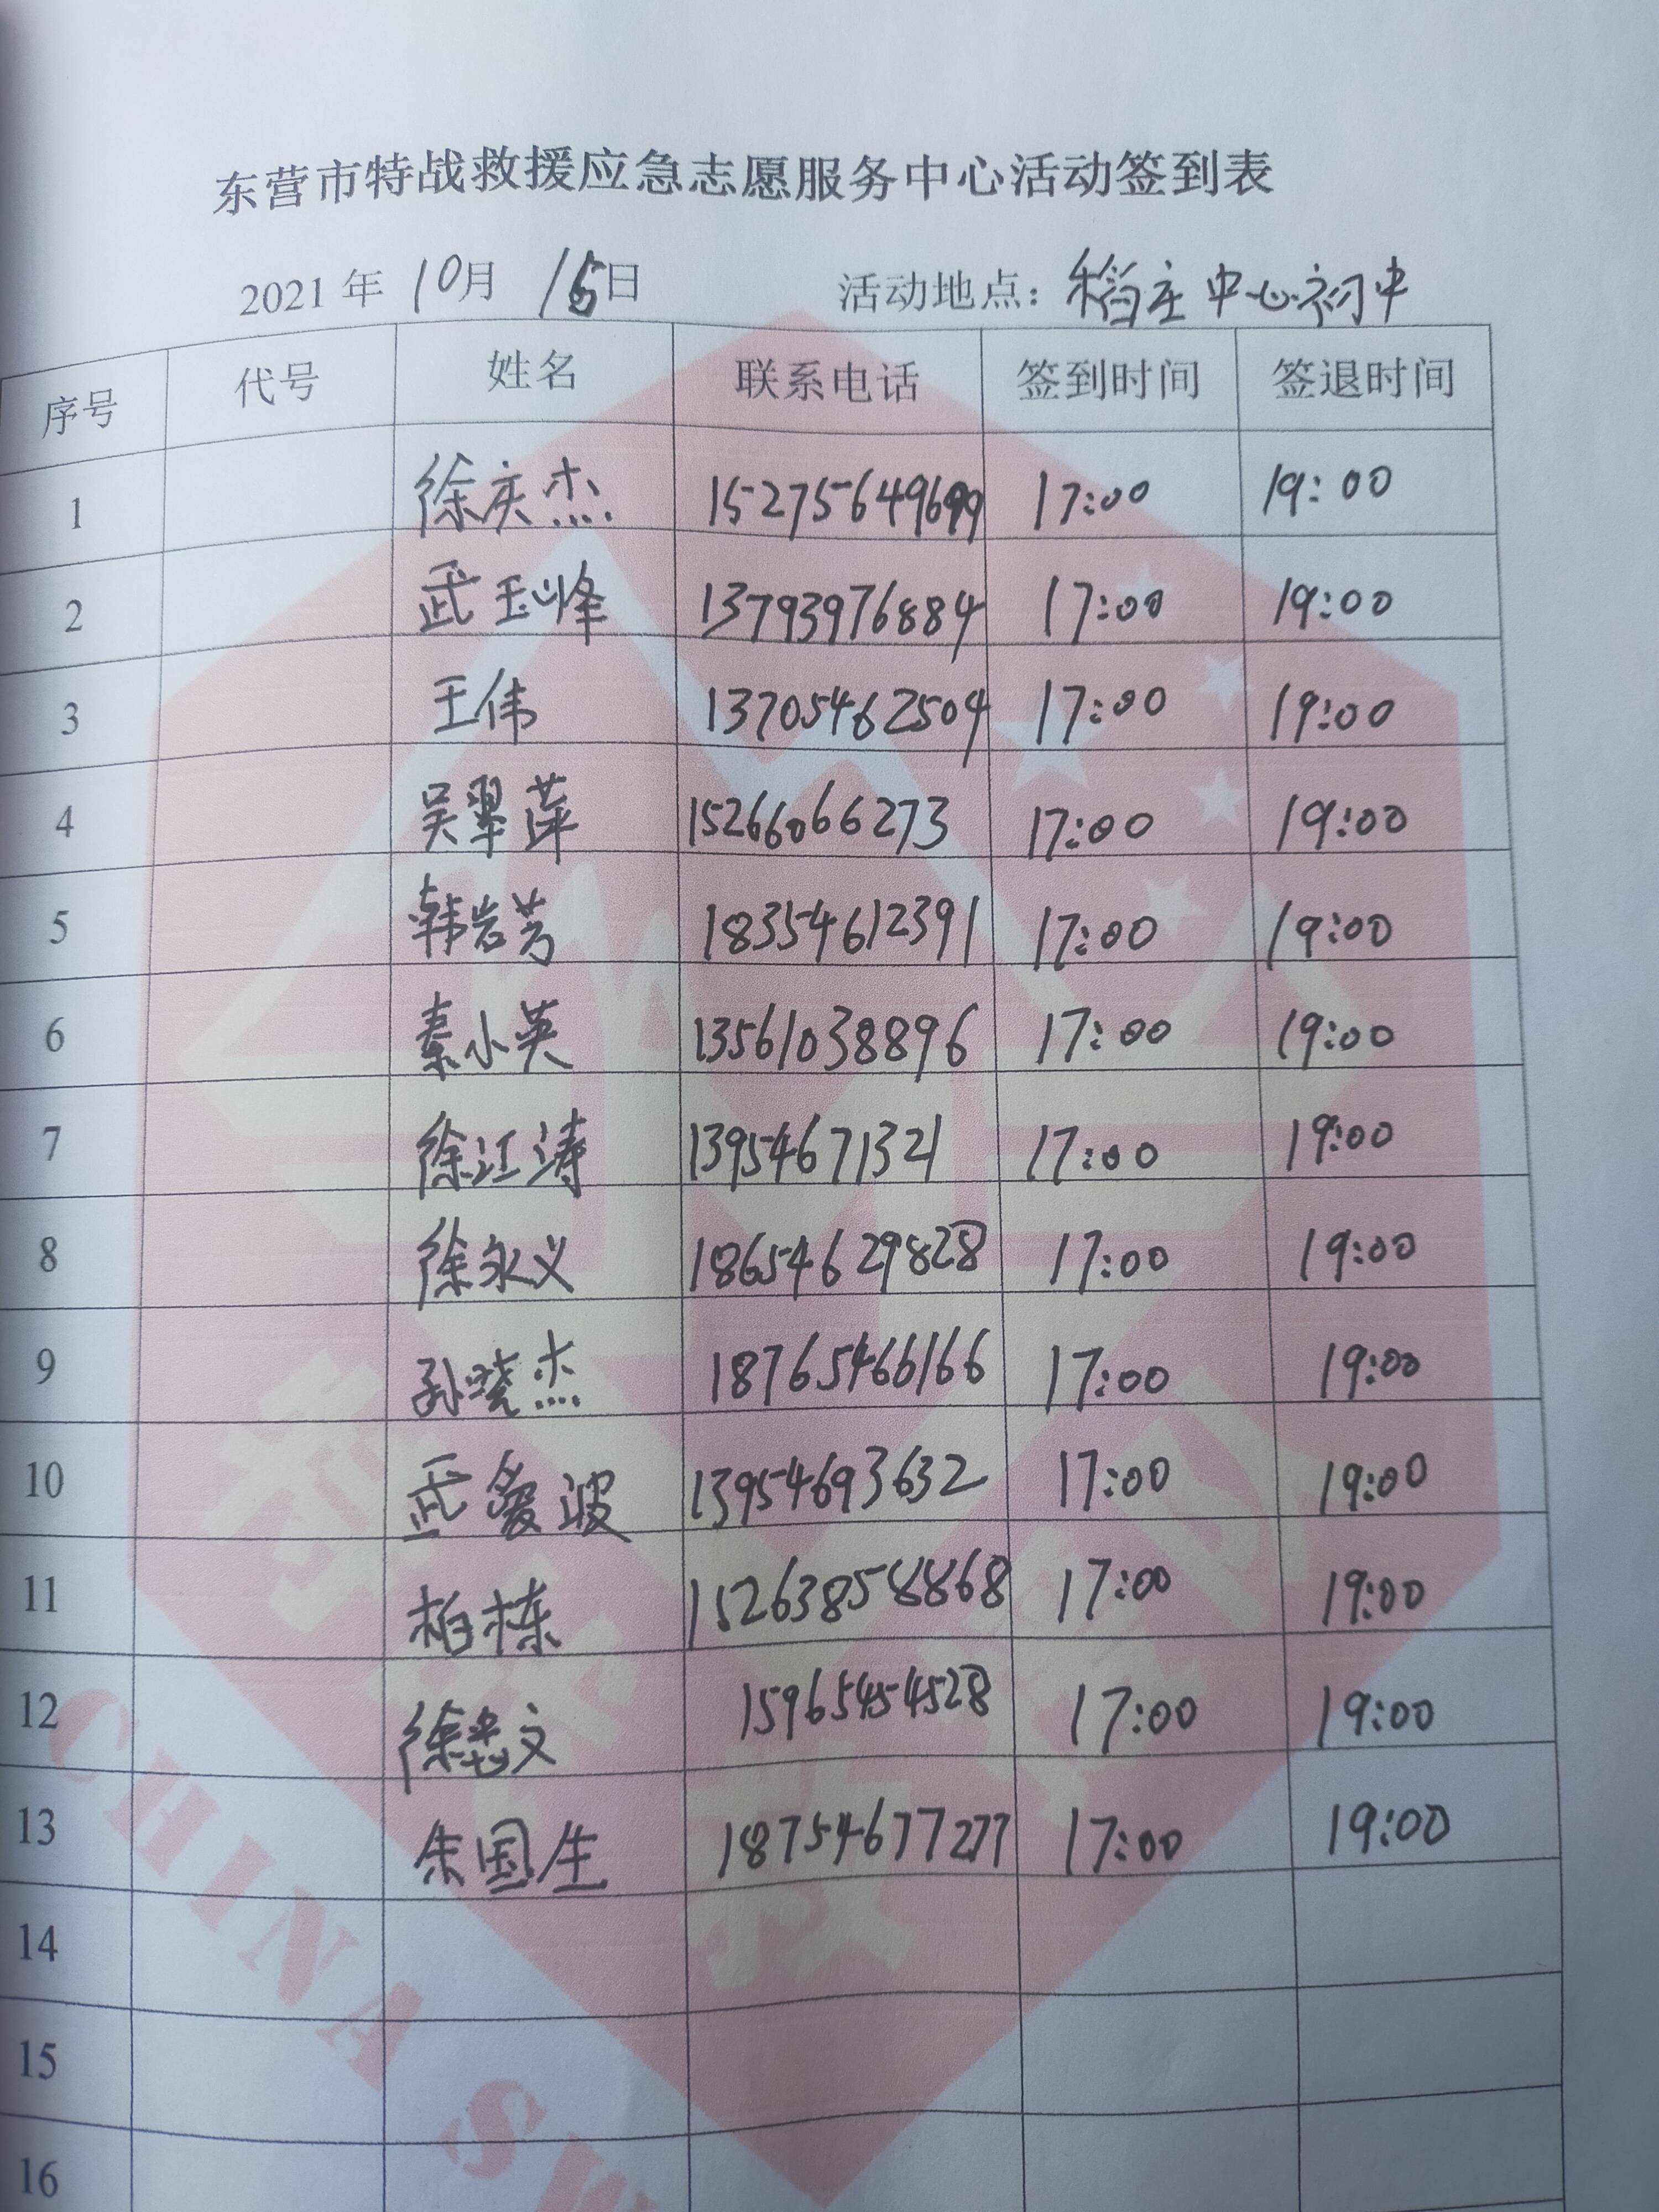 东营市特战救援应急志愿服务中心活动签到表
2021 年 10月 15日 活动地点：稻庄中心初中
序号 代号 姓名 联系电话 签到时间 签退时间
1 徐庆杰 17:00 19:00
2 武玉峰 13793976884 17:00 19:00
3 王伟 13705462504 17:00 19:00
4 吴翠萍 15266066273 17:00 19:00
5 韩岩芳 18354612391 17:00 19:00
6 秦小英 13561038896 17:00 19:00
7 徐江涛 13954671321 17:00 19:00
8 徐永义 18654629828 17:00 19:00
9 孙晓杰 18765466166 17:00 19:00
10 武爱波 13954693632 17:00 19:00
11 柏栋 15263858868 17:00 19:00
12 徐忠文 15965454528 17:00 19:00
13 朱国生 18754677277 17:00 19:00
14
15
16
CHINA SW